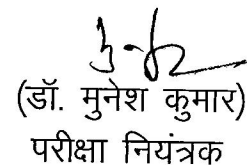 (डॉ. मुनेश कुमार)
परीक्षा नियंत्रक